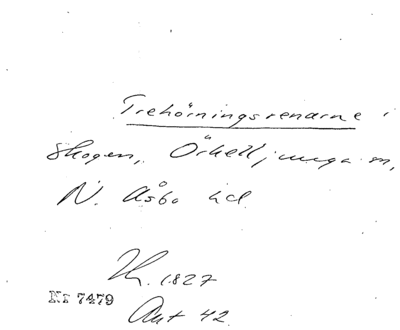 Trehörningsrenarne i
skogen, Örkelljunga sn,
N. Åsbo hd.
1827
Nr 7479
Ant 42